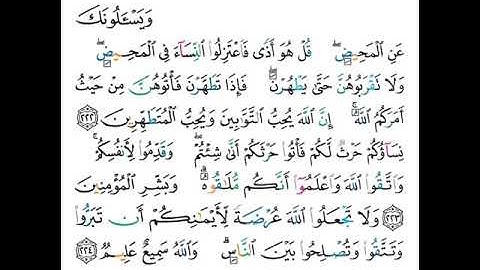 وَيَسْـَٔلُونَكَ
عَنِ ٱلْمَحِيضِۖ قُلْ هُوَ أَذًى فَٱعْتَزِلُوا۟ ٱلنِّسَآءَ فِى ٱلْمَحِيضِۖ
وَلَا تَقْرَبُوهُنَّ حَتَّىٰ يَطْهُرْنَۖ فَإِذَا تَطَهَّرْنَ فَأْتُوهُنَّ مِنْ حَيْثُ
أَمَرَكُمُ ٱللَّهُۚ إِنَّ ٱللَّهَ يُحِبُّ ٱلتَّوَّٰبِينَ وَيُحِبُّ ٱلْمُتَطَهِّرِينَ ٢٢٢
نِسَآؤُكُمْ حَرْثٌ لَّكُمْ فَأْتُوا۟ حَرْثَكُمْ أَنَّىٰ شِئْتُمْۖ وَقَدِّمُوا۟ لِأَنفُسِكُمْۚ
وَٱتَّقُوا۟ ٱللَّهَ وَٱعْلَمُوٓا۟ أَنَّكُم مُّلَٰقُوهُۗ وَبَشِّرِ ٱلْمُؤْمِنِينَ
٢٢٣ وَلَا تَجْعَلُوا۟ ٱللَّهَ عُرْضَةً لِّأَيْمَٰنِكُمْ أَن تَبَرُّوا۟
وَتَتَّقُوا۟ وَتُصْلِحُوا۟ بَيْنَ ٱلنَّاسِۗ وَٱللَّهُ سَمِيعٌ عَلِيمٌ ٢٢٤